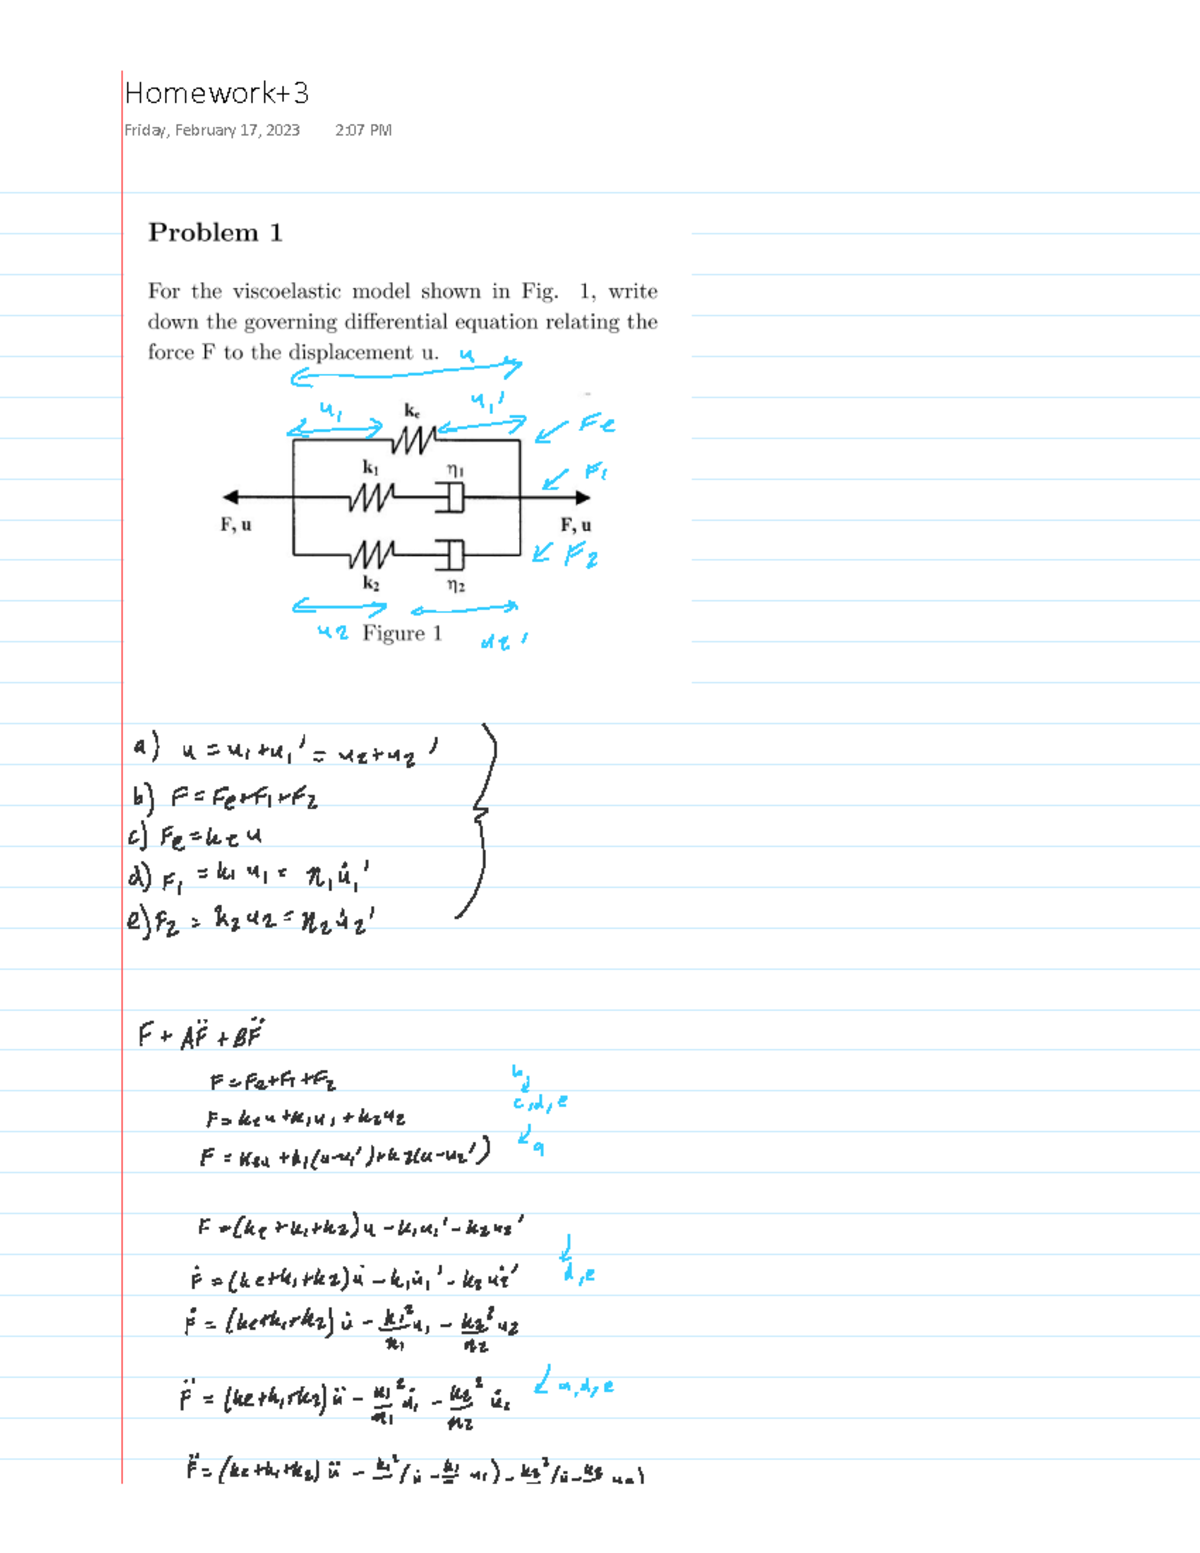 Homework+3
Friday, February 17, 2023 2:07 PM
Problem 1
For the viscoelastic model shown in Fig. 1, write
down the governing differential equation relating the
force F to the displacement u.
u
u₁ kₑ u₁' Fe
k₁ η₁ F₁
F, u F, u
F₂
k₂ η₂
u2 Figure 1 u2'
a) u = u₁+u₁' = u₂+u₂'
b) F = Fe+F₁+F₂
c) Fe = ke u
d) F₁ = k₁ u₁ = n₁ u̇₁'
e) F₂ = k₂ u₂ = n₂ u̇₂'
F + AF̈ + BF̈
F = Fe+F₁+F₂ b,
c,d,e
F = ke u + k₁u₁ + k₂u₂
F = keu + k₁(u-u₁') + k₂(u-u₂') a
F = (ke+k₁+k₂)u - k₁u₁' - k₂u₂'
Ḟ = (ke+k₁+k₂)u̇ - k₁u̇₁' - k₂u̇₂' d,e
Ḟ = (ke+k₁+k₂)u̇ - k₁²/n₁ u₁ - k₂²/n₂ u₂
F̈ = (ke+k₁+k₂)ü - k₁²/n₁ u̇₁ - k₂²/n₂ u̇₂ a,d,e
F̈ = (ke+k₁+k₂)ü - k₁²(u̇ - k₁ u₁) - k₂²(u̇ - k₂ u₂)